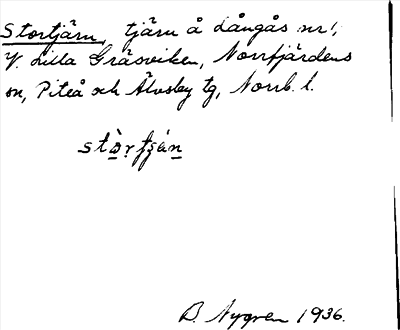 Stortjärn, tjärn å Långås nr 1,
V. Lilla Gräsviken, Norrfjärdens
sn, Piteå och Älvsby tg, Norrb. l.
stò̱rtjá̱n
B. Nygren 1936.